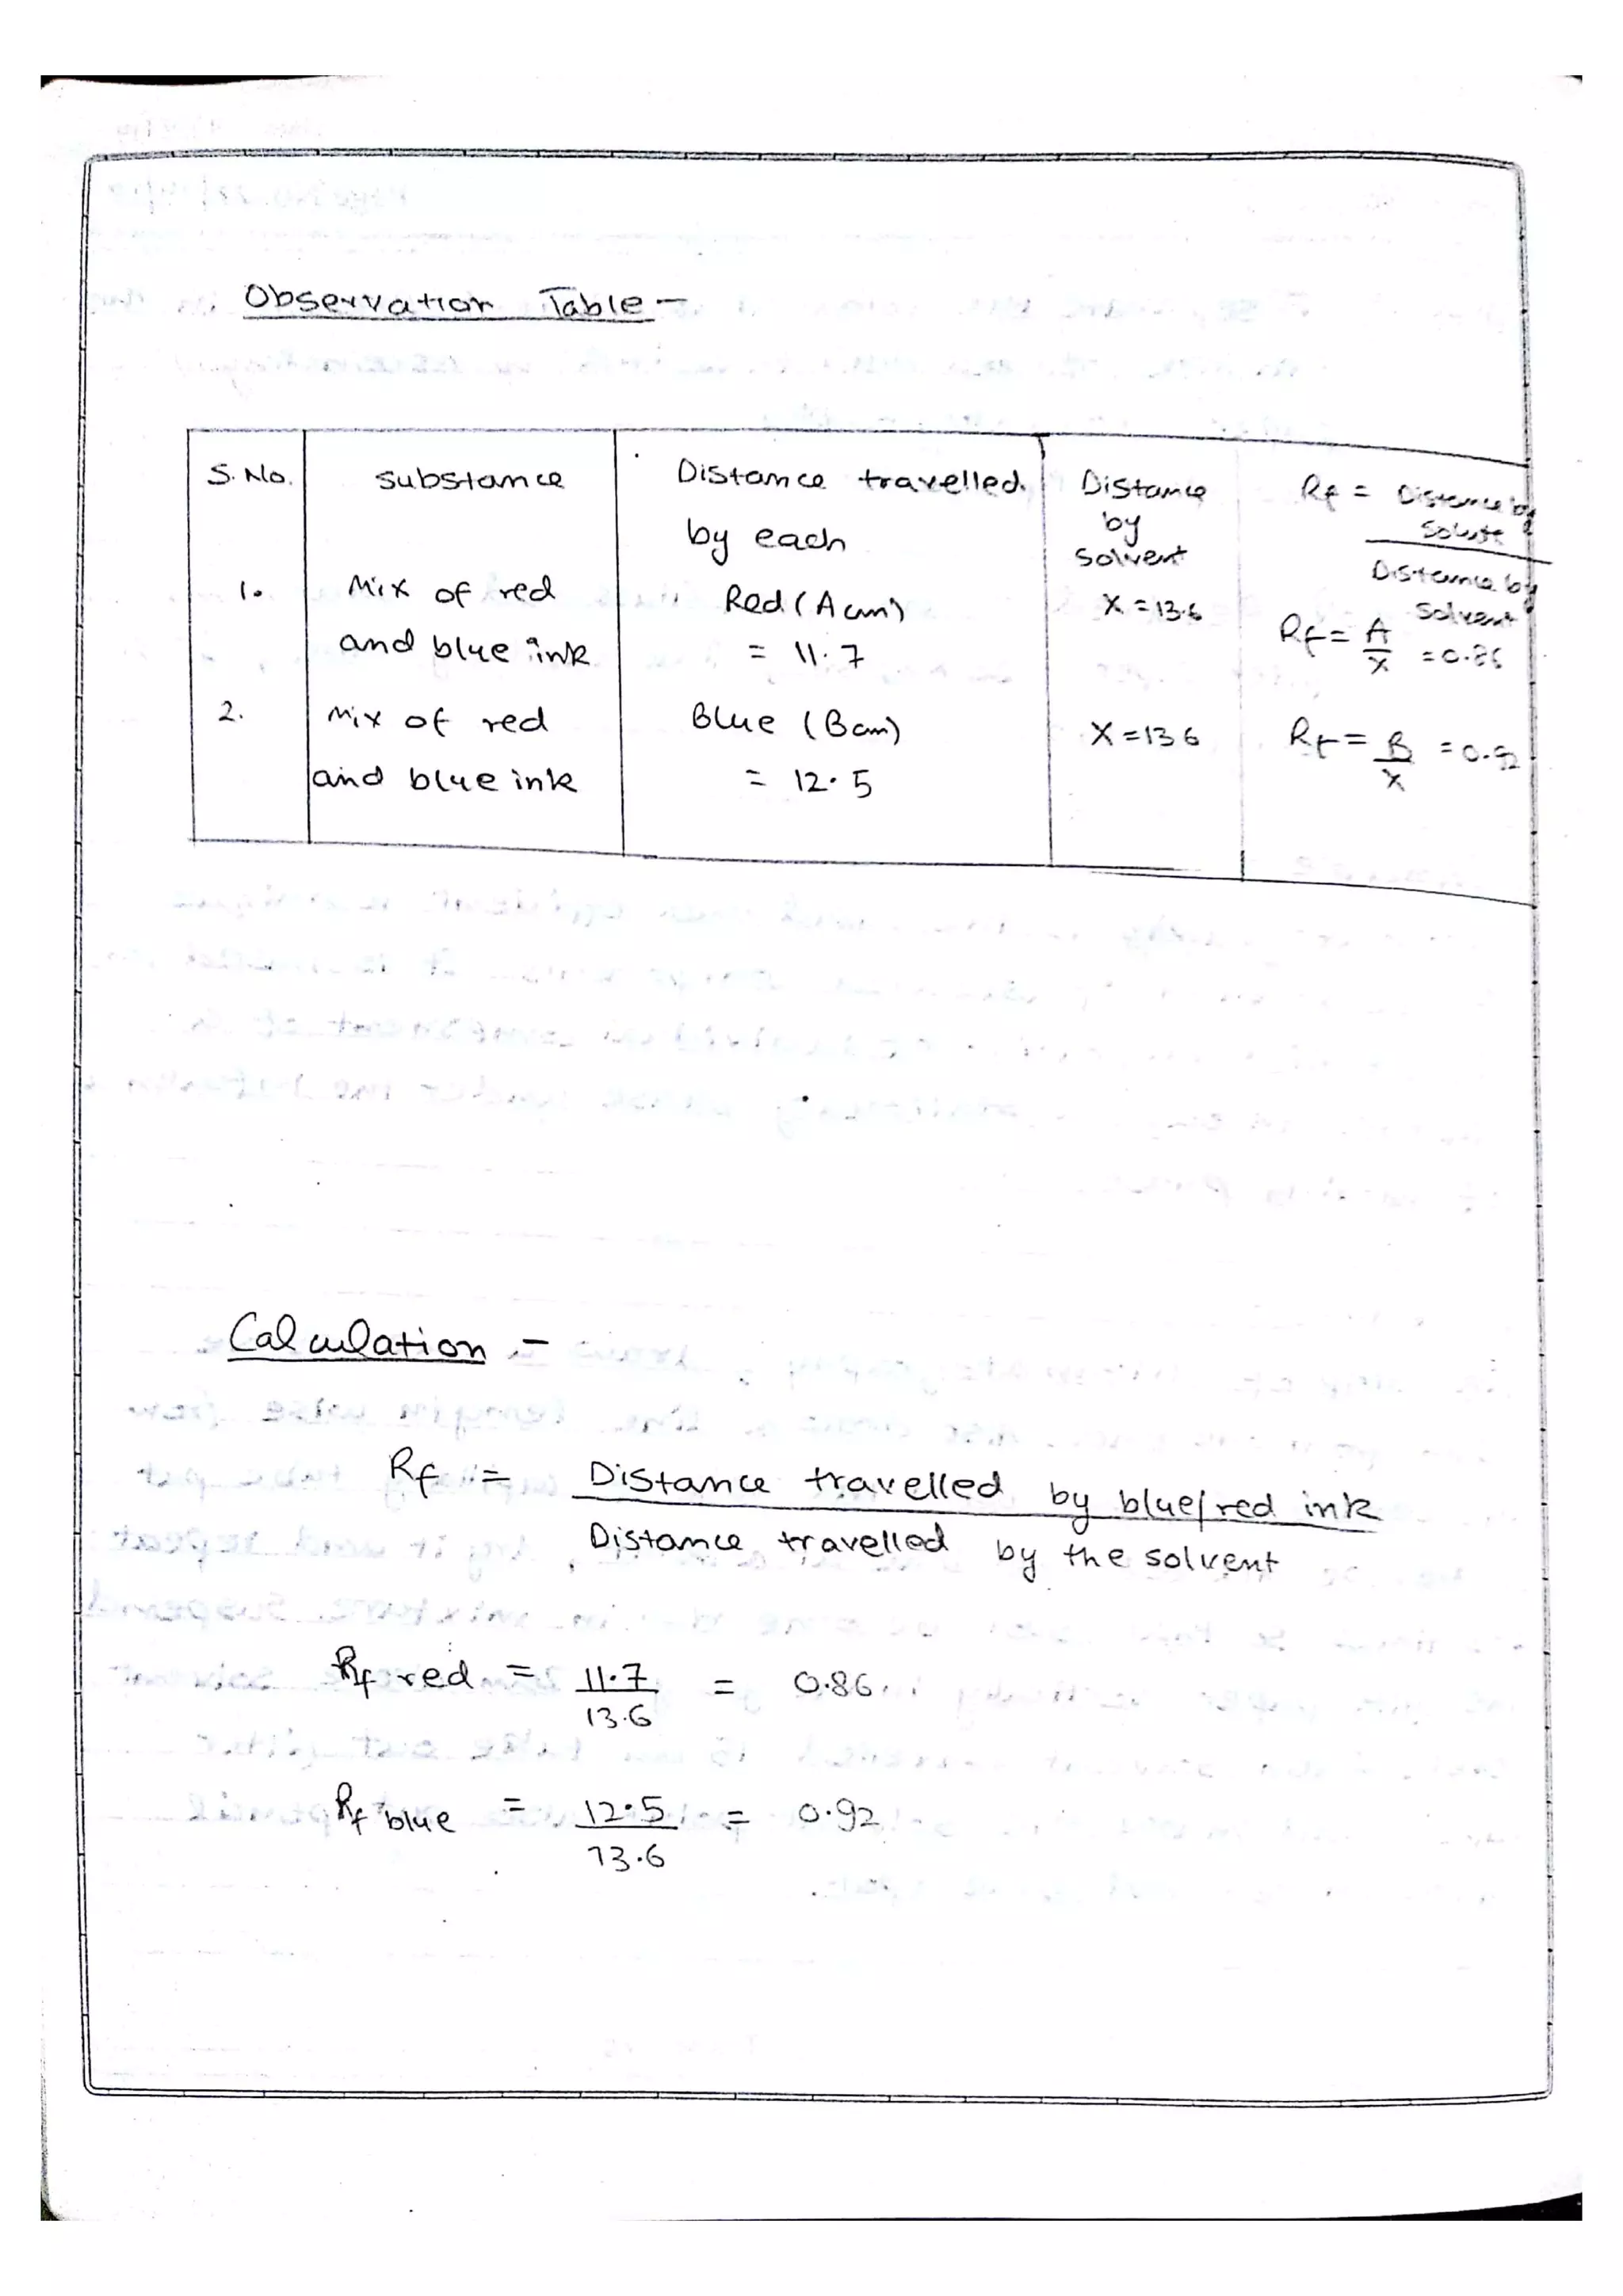 Observation Table -
S. No. substance Distance travelled by each Distance by solvent Rf = Distance by solute / Distance by solvent
1. Mix of red and blue ink Red (A cm) = 11.7 X = 13.6 Rf = A/X = 0.86
2. Mix of red and blue ink Blue (B cm) = 12.5 X = 13.6 Rf = B/X = 0.92
Calculation -
Rf = Distance travelled by blue/red ink
Distance travelled by the solvent
Rf red = 11.7 = 0.86
13.6
Rf blue = 12.5 = 0.92
13.6